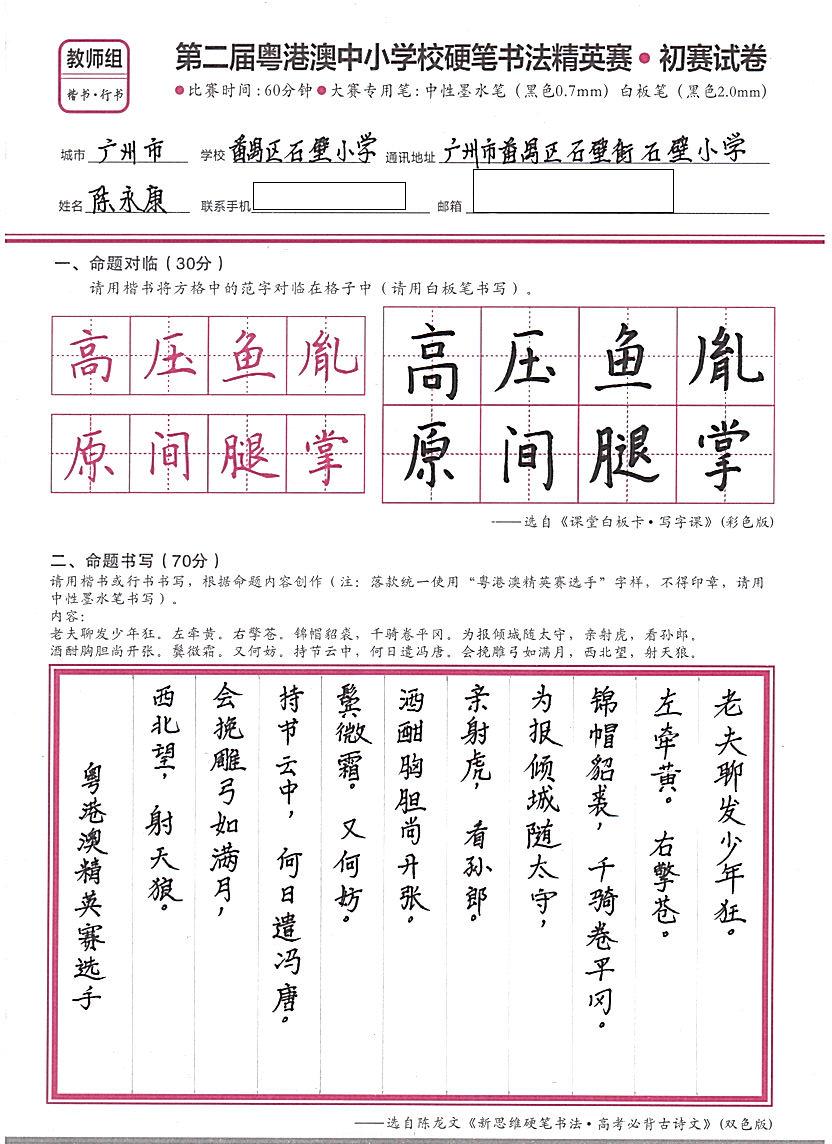 教师组
楷书·行书
第二届粤港澳中小学校硬笔书法精英赛·初赛试卷
比赛时间：60分钟 大赛专用笔：中性墨水笔（黑色0.7mm）白板笔（黑色2.0mm）
城市 广州市 学校 番禺区石壁小学 通讯地址 广州市番禺区石壁街石壁小学
姓名 陈永康 联系手机 邮箱
一、命题对临（30分）
请用楷书将方格中的范字对临在格子中（请用白板笔书写）。
高压鱼胤 高压鱼胤
原间腿掌 原间腿掌
——选自《课堂白板卡·写字课》（彩色版）
二、命题书写（70分）
请用楷书或行书书写，根据命题内容创作（注：落款统一使用“粤港澳精英赛选手”字样，不得印章，请用
中性墨水笔书写）。
内容：
老夫聊发少年狂。左牵黄。右擎苍。锦帽貂裘，千骑卷平冈。为报倾城随太守，亲射虎，看孙郎。
酒酣胸胆尚开张。鬓微霜。又何妨。持节云中，何日遣冯唐。会挽雕弓如满月，西北望，射天狼。
老夫聊发少年狂。
左牵黄。右擎苍。
锦帽貂裘，千骑卷平冈。
为报倾城随太守，
亲射虎，看孙郎。
酒酣胸胆尚开张。
鬓微霜。又何妨。
持节云中，何日遣冯唐。
会挽雕弓如满月，
西北望，射天狼。
粤港澳精英赛选手
——选自陈龙文《新思维硬笔书法·高考必背古诗文》（双色版）